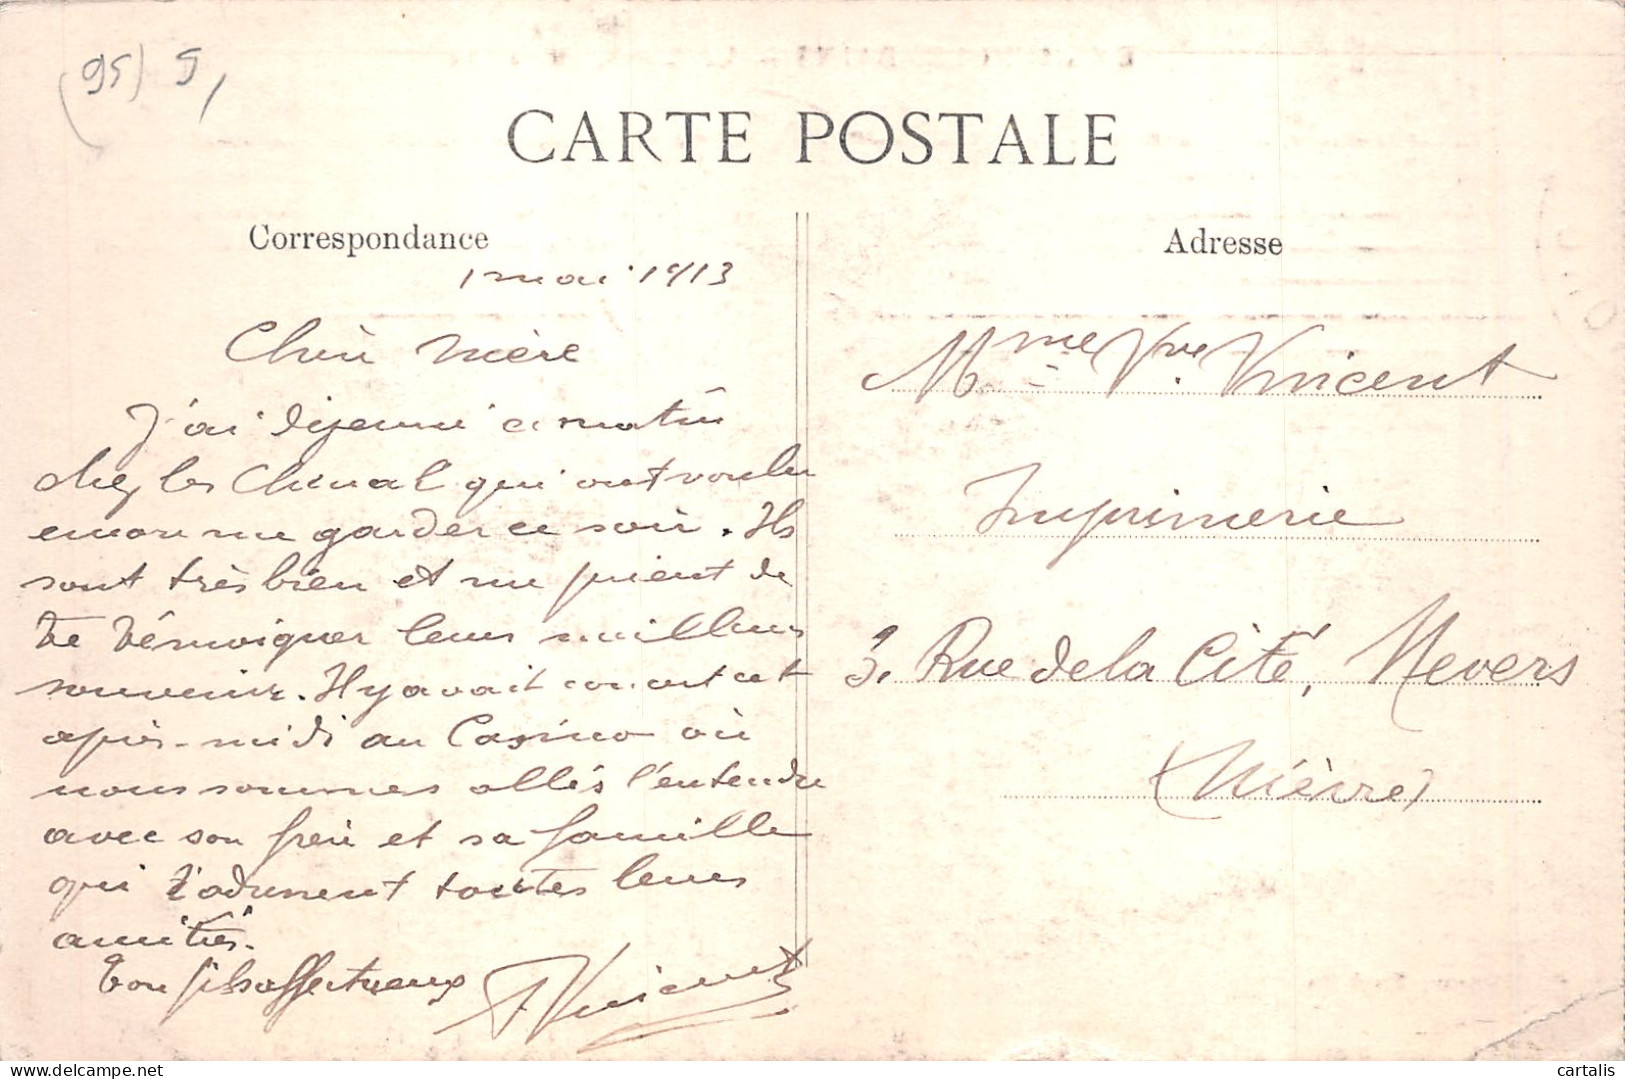 (95) 5,
CARTE POSTALE
Correspondance
1 mai 1913
Chère Mère
J'ai déjeuné ce matin
chez les Chenal qui ont voulu
encore me garder ce soir. Ils
sont très bien et me prient de
te témoigner leurs meilleurs
souvenirs. Il y avait concert cet
après-midi au Casino où
nous sommes allés l'entendre
avec son frère et sa famille
qui t'adressent toutes leurs
amitiés.
Ton fils affectueux
Vincent
Adresse
Mme Vve Vincent
Imprimerie
3, Rue de la Cité, Nevers
(Nièvre)
delcampe.net
cartalis